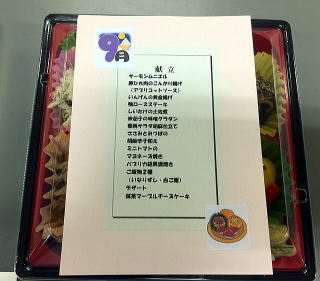 9月
献立
サーモンムニエル
豚ひれ肉のこんがり揚げ
(アプリコットソース)
いんげんの黄金揚げ
鴨ロースステーキ
しいたけの土佐煮
味噌グラタン
春雨サラダ胡麻仕立て
ささみとみつばの
胡麻辛子和え
ミニトマトの
マヨネーズ焼き
パプリカ
ご飯物2種
(いなりずし・白ご飯)
デザート
抹茶マーブルチーズケーキ